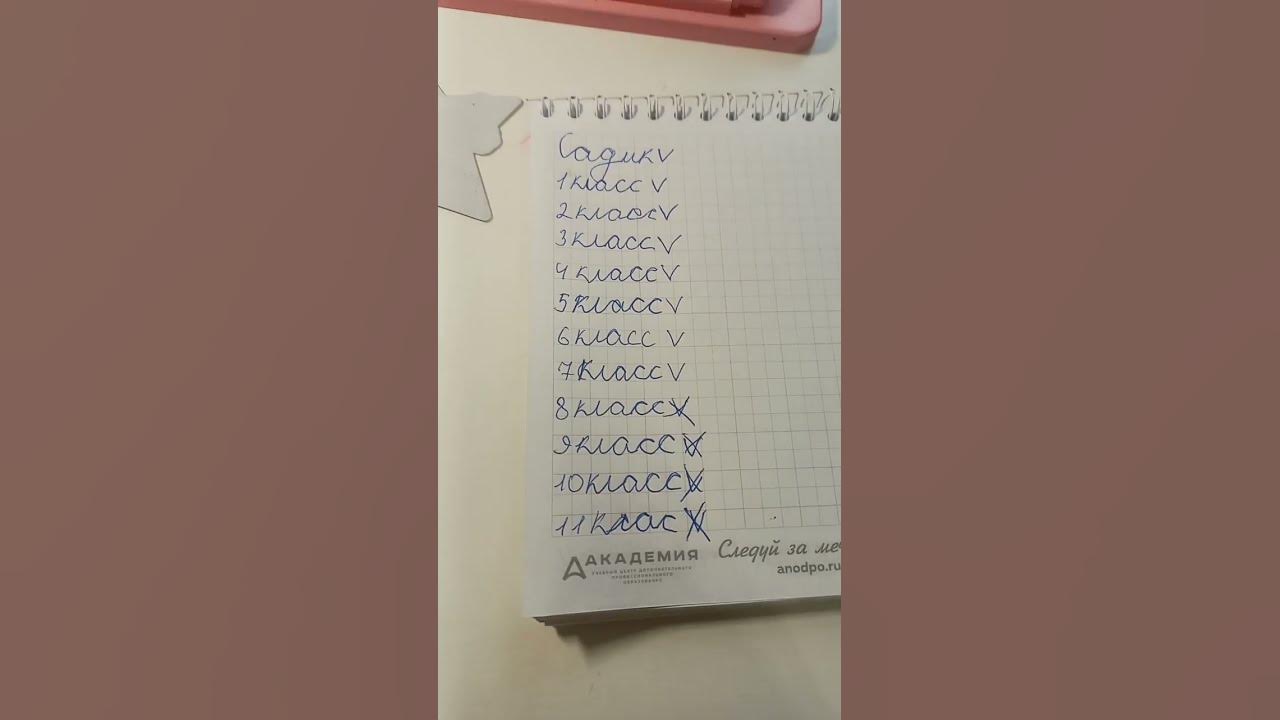 Садик V
1 класс V
2 класс V
3 класс V
4 класс V
5 класс V
6 класс V
7 Класс V
8 класс
9 класс
10 класс
11 клас
АКАДЕМИЯ
УЧЕБНЫЙ ЦЕНТР ДОПОЛНИТЕЛЬНОГО
ПРОФЕССИОНАЛЬНОГО
ОБРАЗОВАНИЯ
Следуй за
anodpo.ru